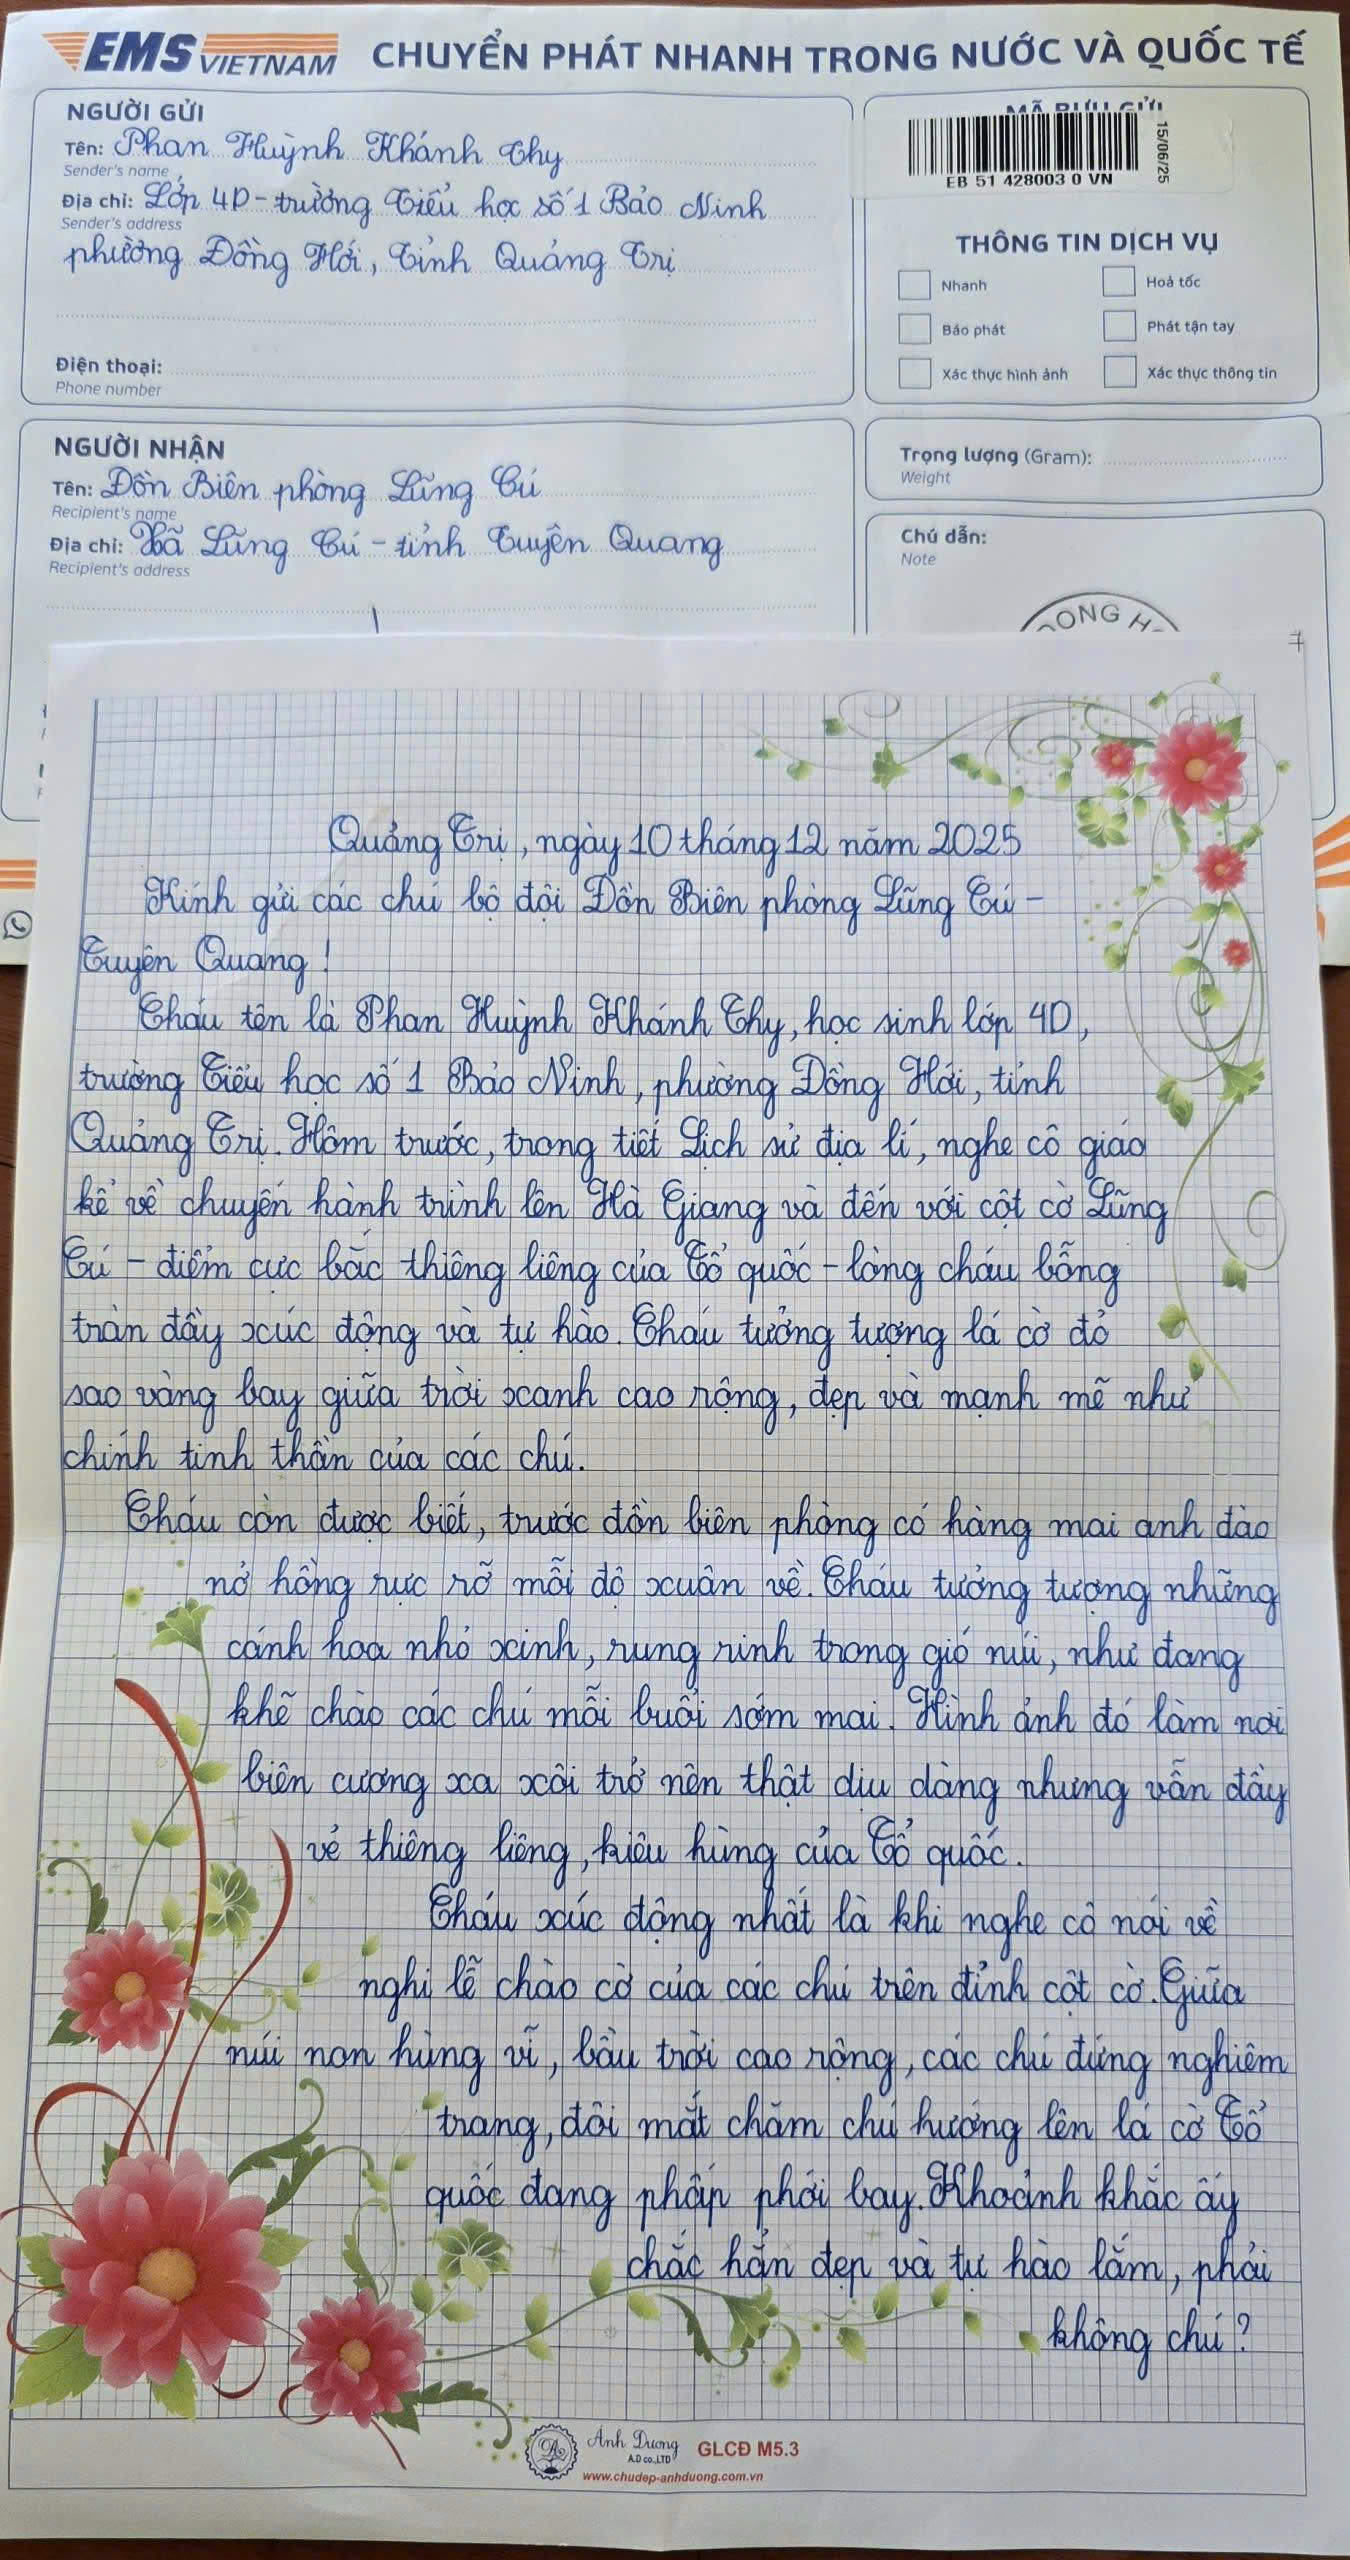 EMS VIETNAM CHUYỂN PHÁT NHANH TRONG NƯỚC VÀ QUỐC TẾ
NGƯỜI GỬI
Tên: Phan Huỳnh Khánh Thy
Sender's name
Địa chỉ: Lớp 4D - trường Tiểu học số 1 Bảo Ninh
Sender's address
phường Đồng Hới, Tỉnh Quảng Trị
Điện thoại:
Phone number
MÃ BƯU GỬI
EB 51 428003 0 VN
15/06/25
THÔNG TIN DỊCH VỤ
Nhanh Hoả tốc
Báo phát Phát tận tay
Xác thực hình ảnh Xác thực thông tin
NGƯỜI NHẬN
Tên: Đồn Biên phòng Lũng Cú
Recipient's name
Địa chỉ: Xã Lũng Cú - tỉnh Tuyên Quang
Recipient's address
Trọng lượng (Gram):
Weight
Chú dẫn:
Note
Quảng Trị, ngày 10 tháng 12 năm 2025
Kính gửi các chú bộ đội Đồn Biên phòng Lũng Cú -
Tuyên Quang!
Cháu tên là Phan Huỳnh Khánh Thy, học sinh lớp 4D,
trường Tiểu học số 1 Bảo Ninh, phường Đồng Hới, tỉnh
Quảng Trị. Hôm trước, trong tiết Lịch sử địa lí, nghe cô giáo
kể về chuyến hành trình lên Hà Giang và đến với cột cờ Lũng
Cú - điểm cực bắc thiêng liêng của Tổ quốc - lòng cháu bỗng
tràn đầy xúc động và tự hào. Cháu tưởng tượng lá cờ đỏ
sao vàng bay giữa trời xanh cao rộng, đẹp và mạnh mẽ như
chính tinh thần của các chú.
Cháu còn được biết, trước đồn biên phòng có hàng mai anh đào
nở hồng rực rỡ mỗi độ xuân về. Cháu tưởng tượng những
cánh hoa nhỏ xinh, rung rinh trong gió núi, như đang
khẽ chào các chú mỗi buổi sớm mai. Hình ảnh đó làm nơi
biên cương xa xôi trở nên thật dịu dàng nhưng vẫn đầy
vẻ thiêng liêng, kiêu hùng của Tổ quốc.
Cháu xúc động nhất là khi nghe cô nói về
nghi lễ chào cờ của các chú trên đỉnh cột cờ. Giữa
núi non hùng vĩ, bầu trời cao rộng, các chú đứng nghiêm
trang, đôi mắt chăm chú hướng lên lá cờ Tổ
quốc đang phấp phới bay. Khoảnh khắc ấy
chắc hẳn đẹp và tự hào lắm, phải
không chú?
Ánh Dương
A.D co.,LTD
GLCĐ M5.3
www.chudep-anhduong.com.vn